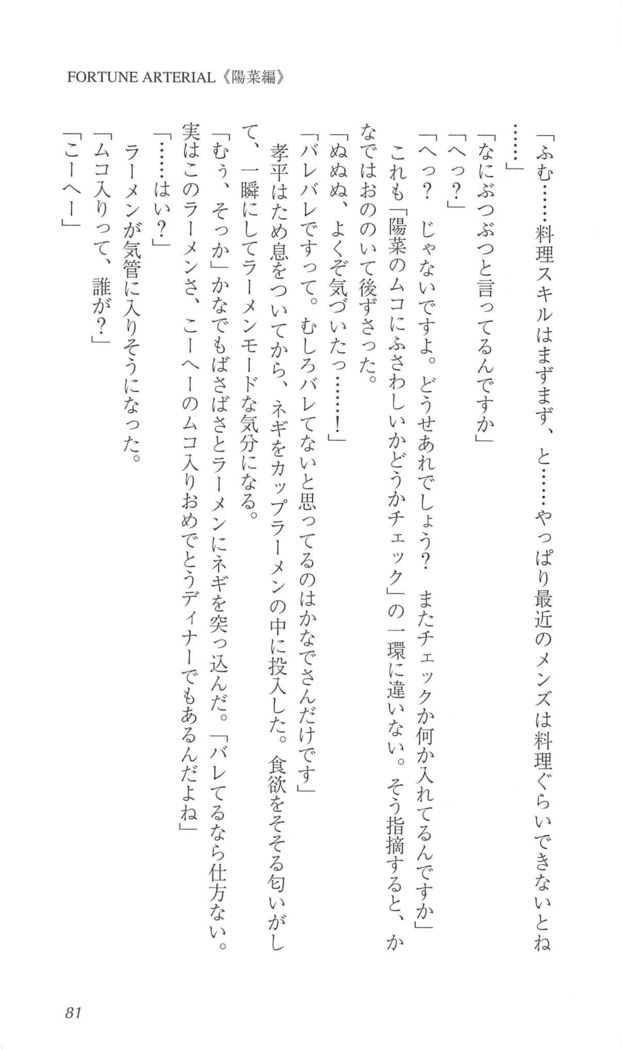 FORTUNE ARTERIAL《陽菜編》
「ふむ……料理スキルはまずまず、と……やっぱり最近のメンズは料理ぐらいできないとね
……」
「なにぶつぶつと言ってるんですか」
「へっ？」
「へっ？　じゃないですよ。どうせあれでしょう？　またチェックか何か入れてるんですか」
これも「陽菜のムコにふさわしいかどうかチェック」の一環に違いない。そう指摘すると、か
なではおののいて後ずさった。
「ぬぬぬ、よくぞ気づいたっ………！」
「バレバレですって。むしろバレてないと思ってるのはかなでさんだけです」
孝平はため息をついてから、ネギをカップラーメンの中に投入した。食欲をそそる匂いがし
て、一瞬にしてラーメンモードな気分になる。
「むぅ、そっか」かなでもばさばさとラーメンにネギを突っ込んだ。「バレてるなら仕方ない。
実はこのラーメンさ、こーへーのムコ入りおめでとうディナーでもあるんだよね」
「……はい？」
ラーメンが気管に入りそうになった。
「ムコ入りって、誰が？」
「こーへー」
81